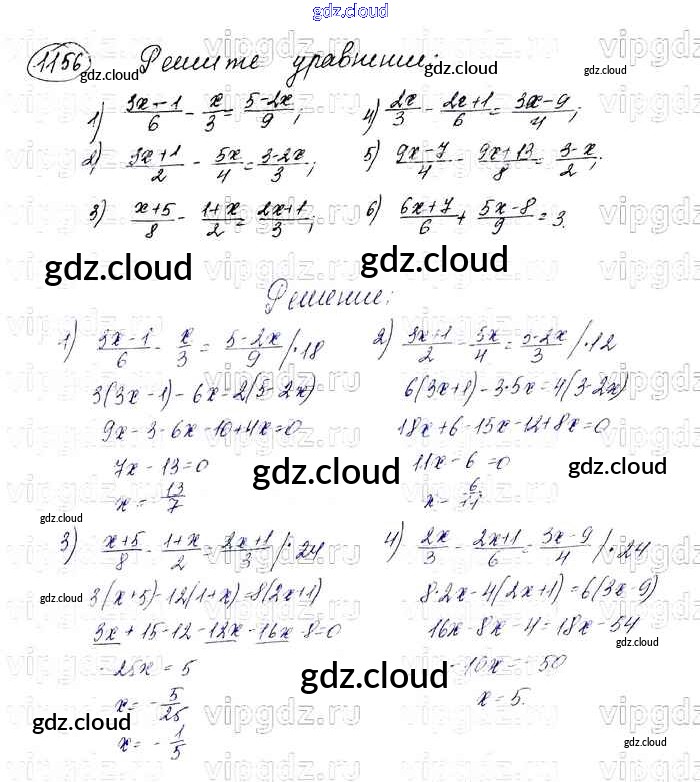 gdz.cloud
1156 Решите уравнения:
1) (3x-1)/6 - x/3 = (5-2x)/9; 4) 2x/3 - (2x+1)/6 = (3x-9)/4;
2) (3x+1)/2 - 5x/4 = (3-2x)/3; 5) (9x-7)/4 - (9x+13)/8 = (3-x)/2;
3) (x+5)/8 - (1+x)/2 = (2x+1)/3; 6) (6x+7)/6 + (5x-8)/9 = 3.
gdz.cloud gdz.cloud
Решение:
1) (3x-1)/6 - x/3 = (5-2x)/9 /·18
3(3x-1)-6x-2(5-2x)
9x-3-6x-10+4x=0
7x-13=0
x = 13/7
2) (3x+1)/2 - 5x/4 = (3-2x)/3 /·12
6(3x+1)-3·5x=4(3-2x)
18x+6-15x-12+8x=0
11x-6=0
x - 6/11
gdz.cloud
3) (x+5)/8 - (1+x)/2 = (2x+1)/3 /·24
3(x+5)-12(1+x)=8(2x+1)
3x+15-12-12x-16x-8=0
-25x=5
x = -5/25
x = -1/5
4) 2x/3 - (2x+1)/6 = (3x-9)/4 /·24
8·2x-4(2x+1)=6(3x-9)
16x-8x-4=18x-54
-10x=-50
x=5.
gdz.cloud
gdz.cloud